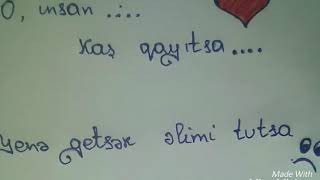 O, insan ....
Kaş qayıtsa ....
Yenə getsək əlimi tutsa
Made With